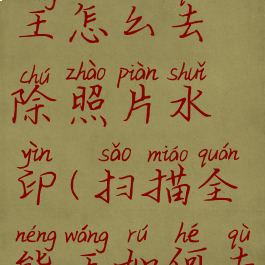 王怎么去
chú zhào piàn shuǐ
除照片水
yìn sǎo miáo quán
印(扫描全
néng wáng rú hé qù
能王如何去